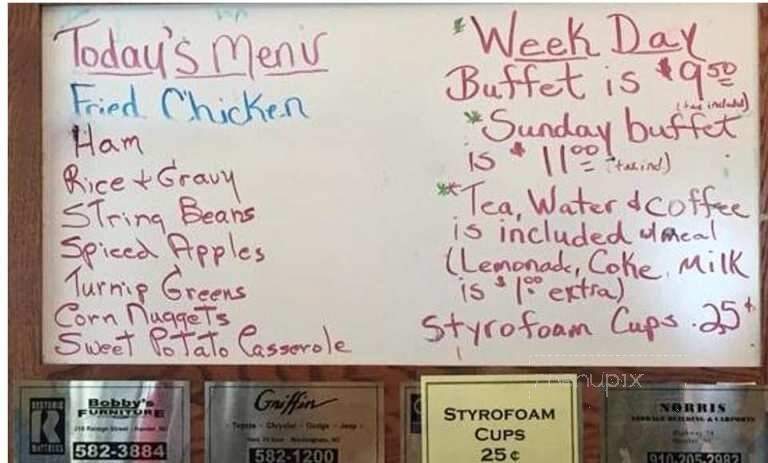 Today's Menu
Fried Chicken
Ham
Rice + Gravy
String Beans
Spiced Apples
Turnip Greens
Corn Nuggets
Sweet Potato Casserole
* Week Day
Buffet is $9.50
(tax included)
* Sunday buffet
is $11.00 (tax incl)
* Tea, Water & coffee
is included w/meal
(Lemonade, Coke, Milk
is $1.00 extra)
Styrofoam Cups .25¢
menupix
Bobby's
FURNITURE
582-3884
Griffin
Toyota - Chrysler - Dodge - Jeep
582-1200
STYROFOAM
CUPS
25¢
NORRIS
910-205-2982